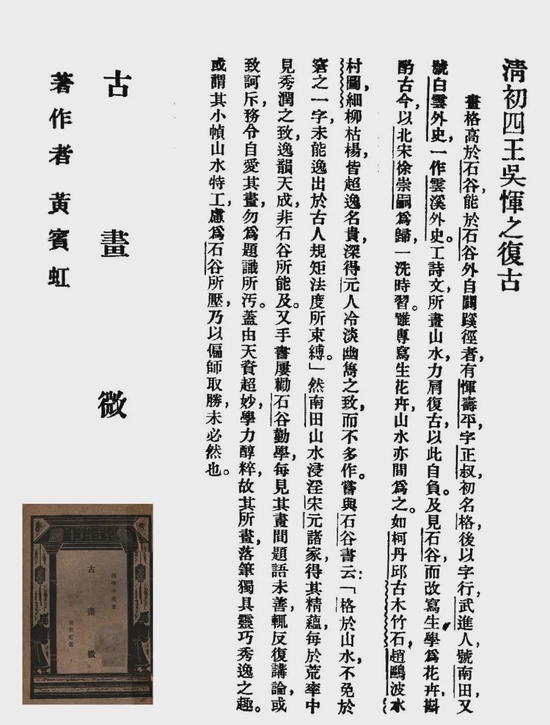 清初四王吳惲之復古
畫格高於石谷,能於石谷外自闢蹊徑者,有惲壽平,字正叔,初名格,後以字行,武進人,號南田,又
號白雲外史,一作雲溪外史。工詩文,所畫山水,力肩復古,以此自負。及見石谷,而改寫生,學爲花卉,斟
酌古今,以北宋徐崇嗣爲歸,一洗時習。雖專寫生花卉,山水亦間爲之。如柯丹邱古木竹石,趙鷗波水
村圖,細柳枯楊,皆超逸名貴,深得元人冷淡幽雋之致,而不多作。嘗與石谷書云:「格於山水,不免於
窘之一字,未能逸出於古人規矩法度所束縛。」然南田山水,浸淫宋元諸家,得其精蘊,每於荒率中
見秀潤之致,逸韻天成,非石谷所能及。又手書屢勸石谷勤學,每見其畫間題語未善,輒反復講論,或
致訶斥,務令自愛其畫,勿爲題識所汚。蓋由天資超妙,學力醇粹,故其所畫,落筆獨具靈巧秀逸之趣。
或謂其小幀山水特工,慮爲石谷所壓,乃以偏師取勝,未必然也。
古畫微
著作者黃賓虹
古畫微